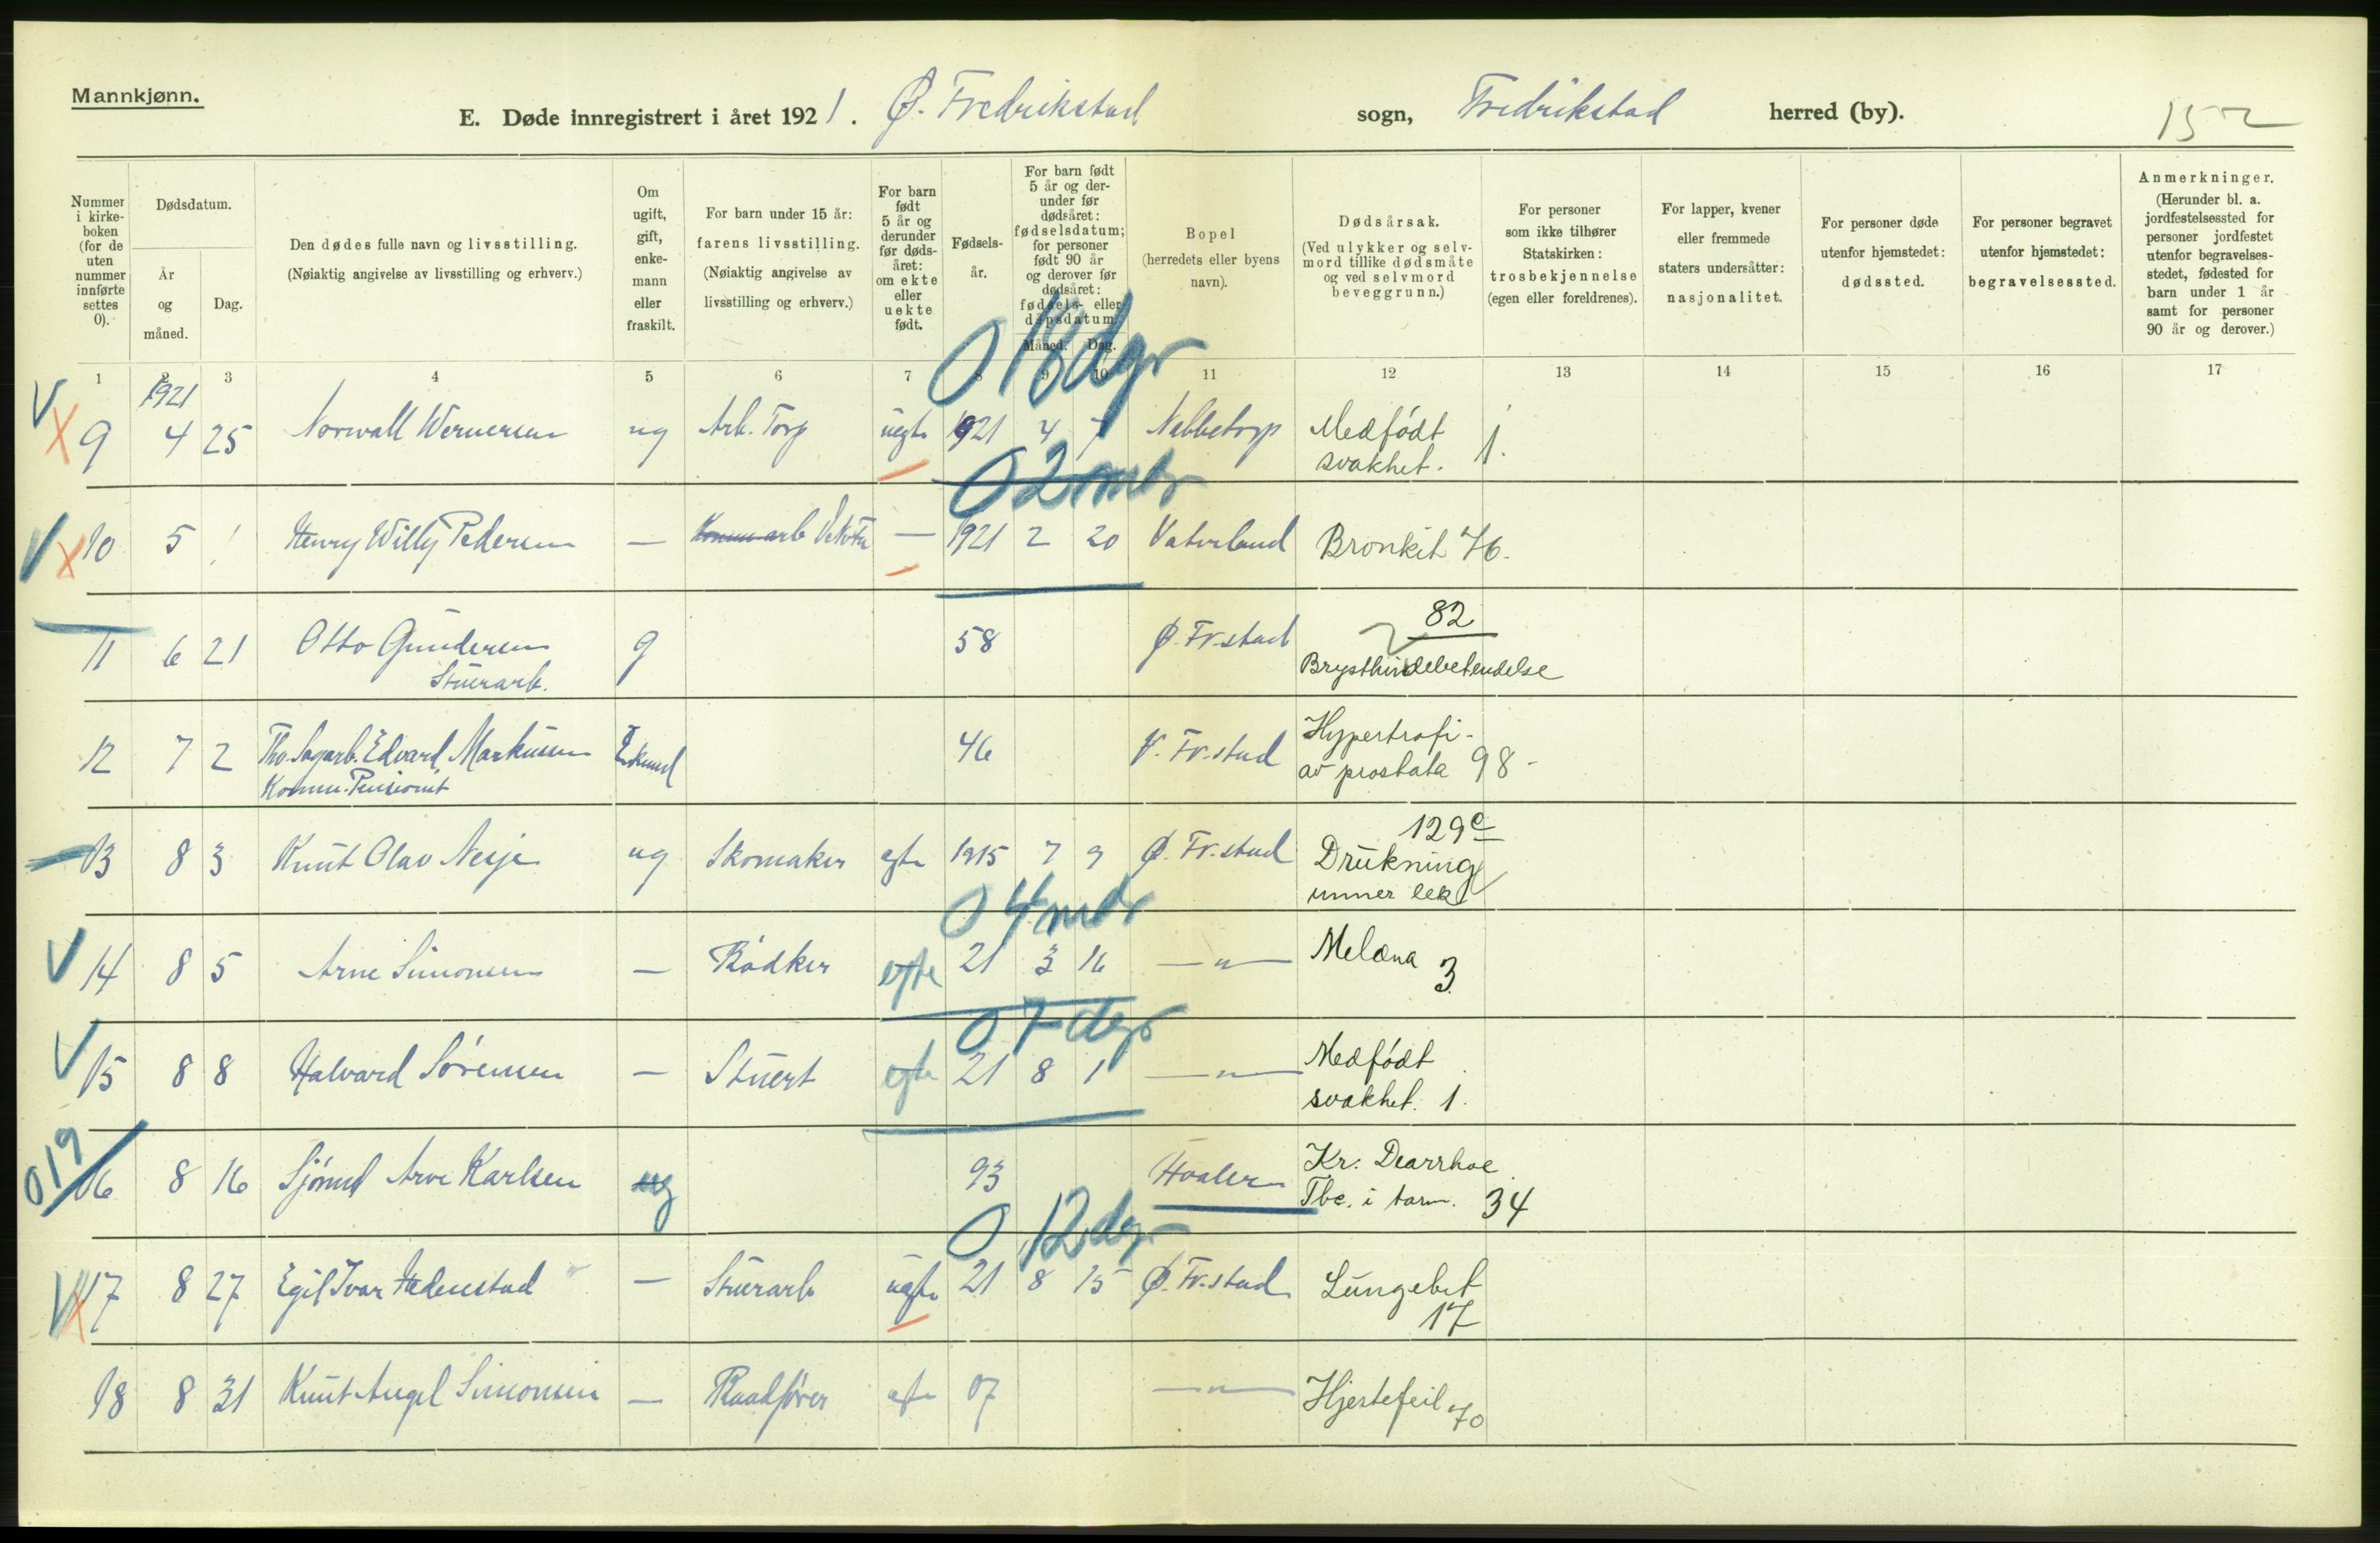 Mannkjønn.
E. Døde innregistrert i året 1921. Ø. Fredrikstad sogn, Fredrikstad herred (by).
152
Nummer i kirke-boken (for de uten nummer innførte settes 0).
Dødsdatum.
År og måned.
Dag.
Den dødes fulle navn og livsstilling.
(Nøiaktig angivelse av livsstilling og erhverv.)
Om ugift, gift, enke-mann eller fraskilt.
For barn under 15 år: farens livsstilling.
(Nøiaktig angivelse av livsstilling og erhverv.)
For barn født 5 år og derunder før døds-året: om ekte eller uekte født.
Fødsels-år.
For barn født 5 år og der-under før dødsåret: fødselsdatum; for personer født 90 år og derover før dødsåret: fødsels- eller dåpsdatum.
Måned. Dag.
Bopel
(herredets eller byens navn).
Dødsårsak.
(Ved ulykker og selv-mord tillike dødsmåte og ved selvmord beveggrunn.)
For personer som ikke tilhører Statskirken: trosbekjennelse (egen eller foreldrenes).
For lapper, kvener eller fremmede staters undersåtter: nasjonalitet.
For personer døde utenfor hjemstedet: dødssted.
For personer begravet utenfor hjemstedet: begravelsessted.
Anmerkninger.
(Herunder bl. a. jordfestelsessted for personer jordfestet utenfor begravelses-stedet, fødested for barn under 1 år samt for personer 90 år og derover.)
1 2 3 4 5 6 7 8 9 10 11 12 13 14 15 16 17
1921
0 18 dgr
V X 9 4 25 Norwall Wernersen ug Arb. Torp uegte 1921 4 7 Nabbetorp Medfødt svakhet. 1.
0 2 mdr
V X 10 5 1 Henry Willy Pedersen — Komm arb — 1921 2 20 Vaterland Bronkit 76.
11 6 21 Otto Gundersen g 58 Ø. Fr.stad 82
Stuerarb. Brysthindebetendelse
12 7 2 Fho. Sagarb. Edvard Markussen Enkemd 46 V. Fr.stad Hypertrofi -
Komm. Pensionist av prostata 98 -
13 8 3 Knut Olav Nesje ug Skomaker egte 1915 7 9 Ø. Fr.stad 129c
Drukning
unner lek
0 4 mdr
V 14 8 5 Arne Simonsen — Bødker egte 21 3 16 —"— Melæna 3.
0 7 dgr
V 15 8 8 Halvard Sørensen — Stuert egte 21 8 1 —"— Medfødt
svakhet. 1.
019
16 8 16 Arve Karlsen ug 93 Hvaler Kr. Dearrhoe
Tbc. i tarm. 34
0 12 dgr
V X 17 8 27 Egil Ivar Hedenstad — Stuerarb uegte 21 8 15 Ø. Fr.stad Lungebet
17
18 8 31 Knut Angel Simonsen — Raadfører egte 07 —"— Hjertefeil 70